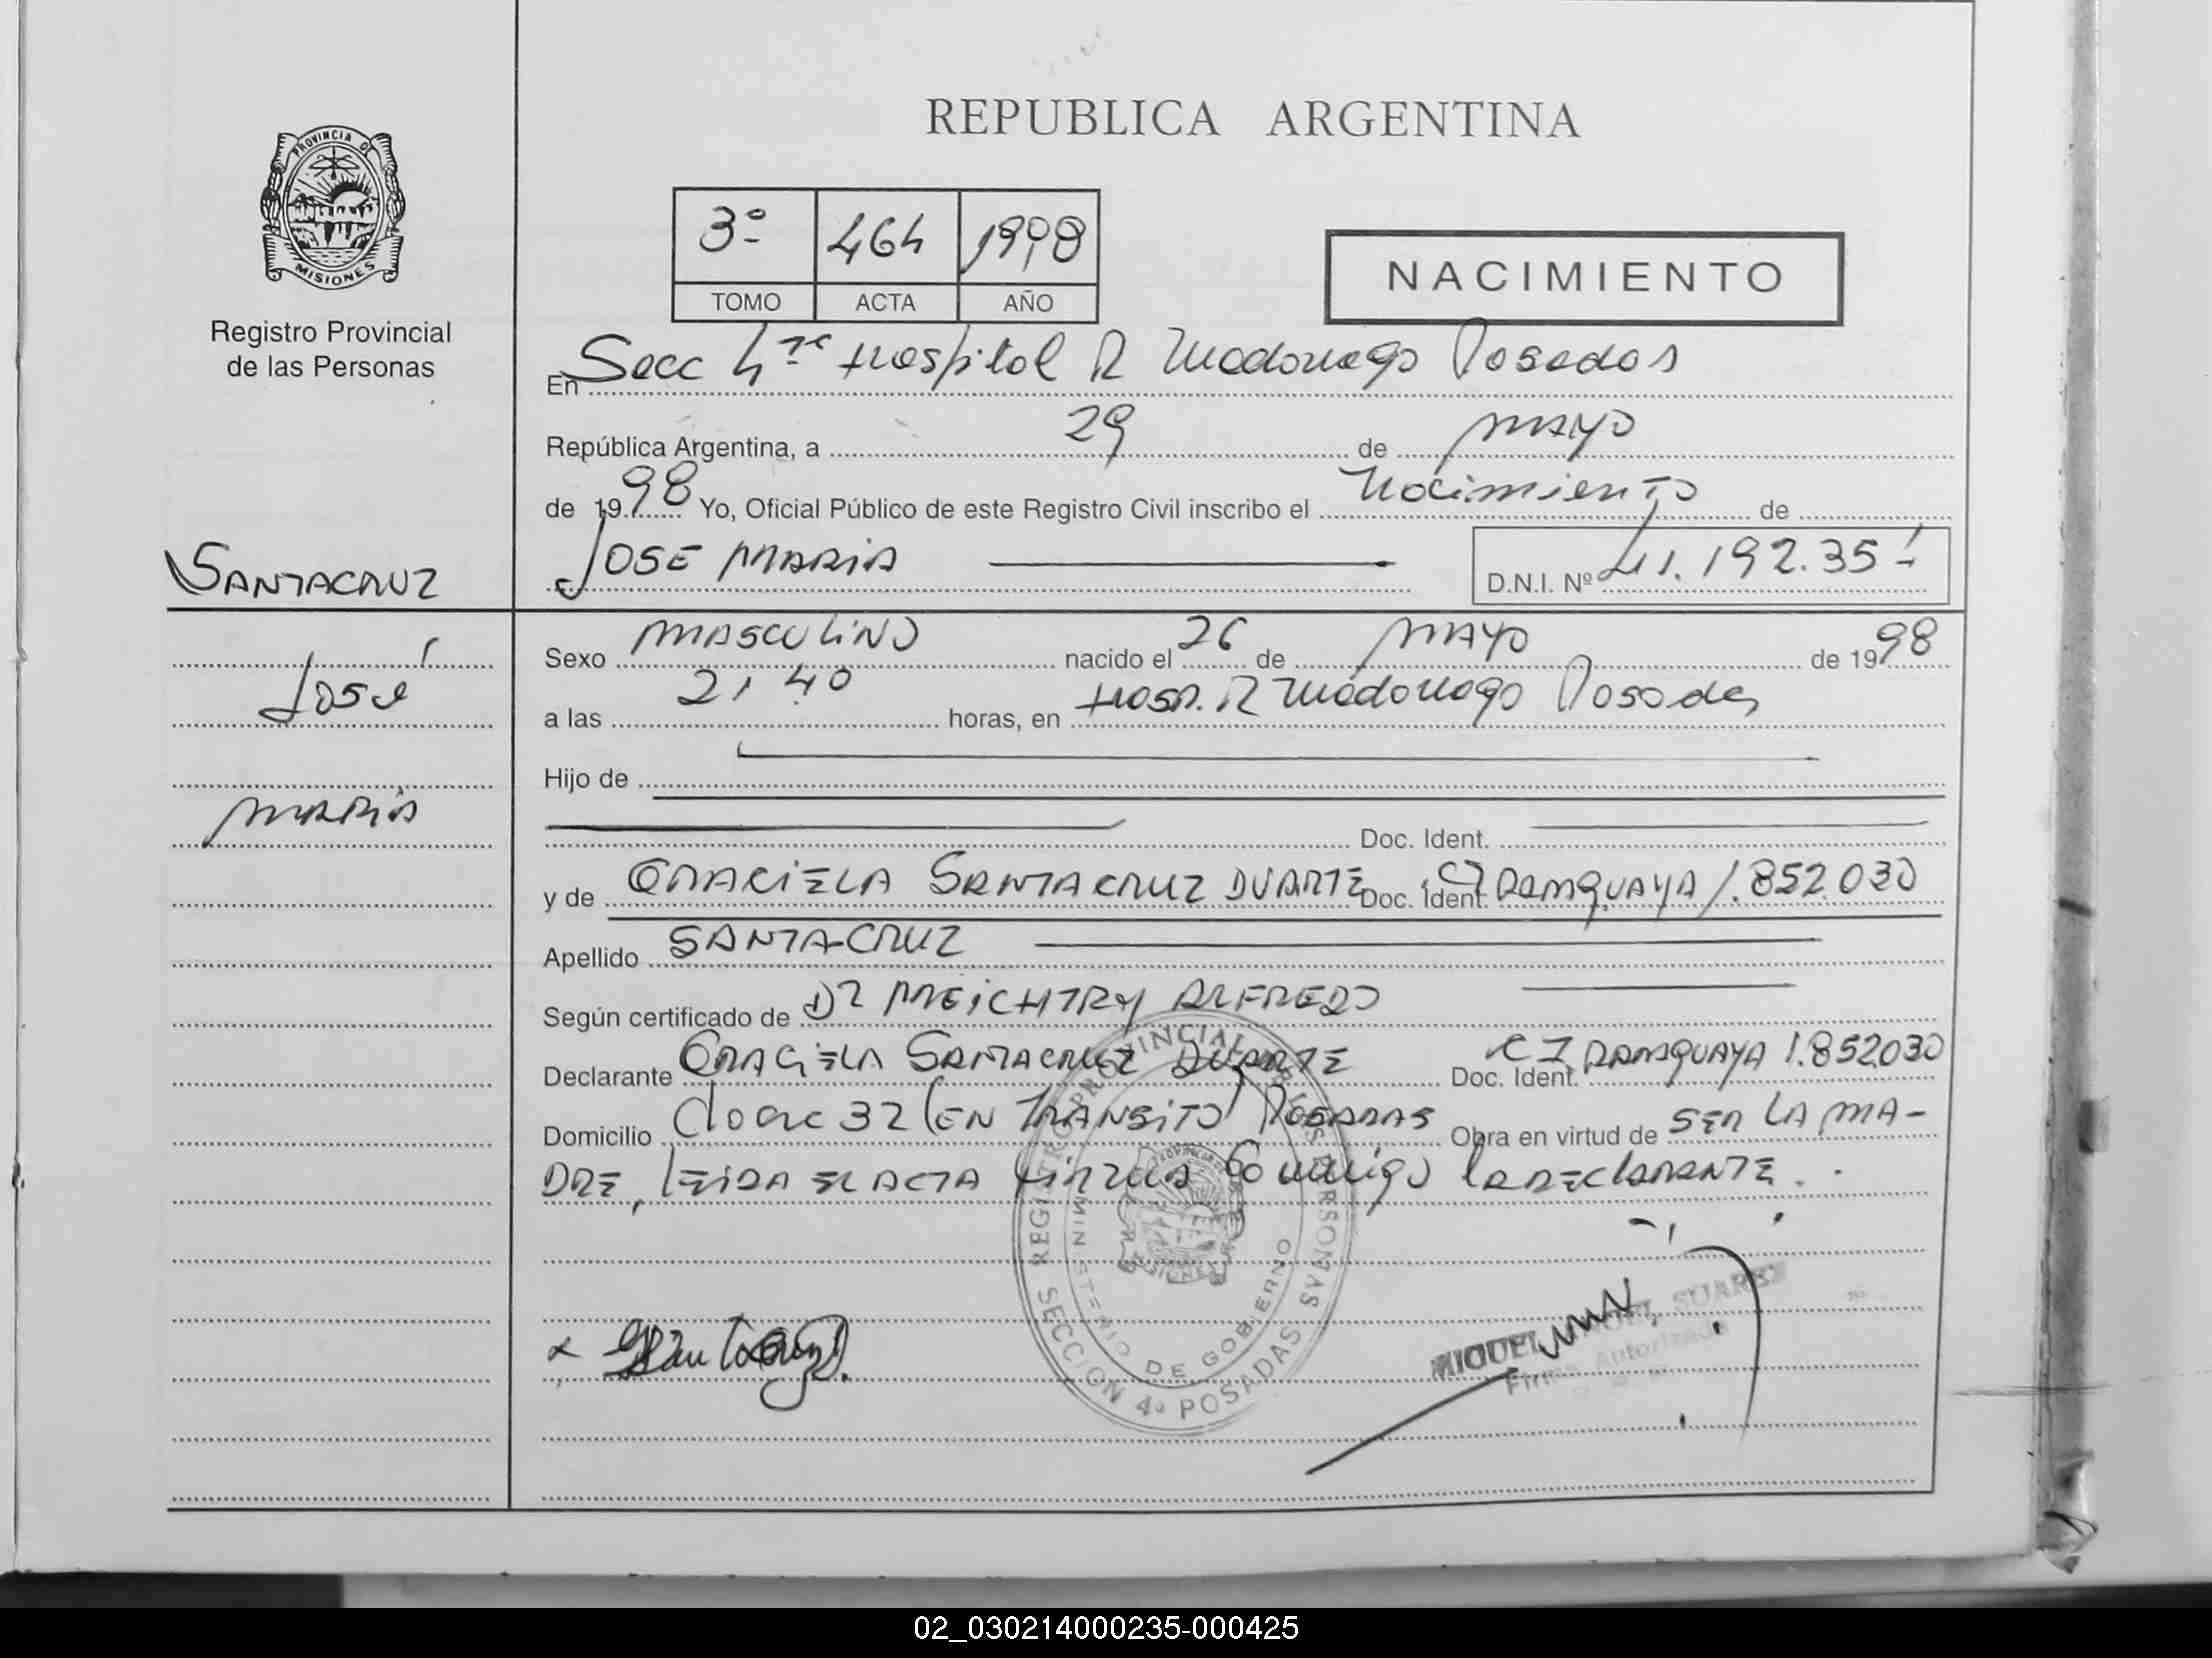 REPUBLICA ARGENTINA
PROVINCIA DE
MISIONES
Registro Provincial
de las Personas
3º 464 1998
TOMO ACTA AÑO
NACIMIENTO
En Secc 4ta Hospital R Madariaga Posadas
República Argentina, a 29 de MAYO
de 1998 Yo, Oficial Público de este Registro Civil inscribo el Nacimiento de
JOSE MARIA D.N.I. Nº 41.192.351
SANTACRUZ
José
MARIA
Sexo MASCULINO nacido el 26 de MAYO de 1998
a las 21.40 horas, en Hosp. R Madariaga Posadas
Hijo de
Doc. Ident.
y de GRACIELA SANTACRUZ DUARTE Doc. Ident. CI PARAGUAYA 1.852.030
Apellido SANTA-CRUZ
Según certificado de Dr MEICHTRY ALFREDO
Declarante GRACIELA SANTACRUZ DUARTE Doc. Ident. CI PARAGUAYA 1.852030
Domicilio 32 (EN TRANSITO) POSADAS Obra en virtud de SER LA MA-
DRE, LEIDA EL ACTA firma Conmigo la DECLARANTE.
REGISTRO PROVINCIAL DE LAS PERSONAS
MINISTERIO DE GOBIERNO
SECCION 4ª POSADAS
MIGUEL SUAREZ
Firma Autorizada
02_030214000235-000425